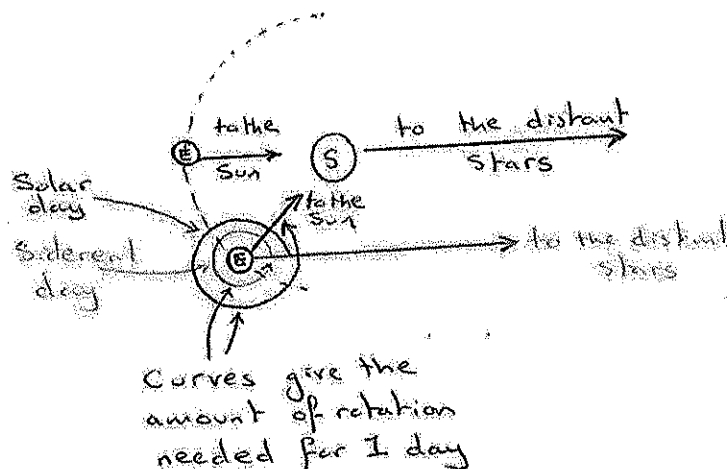 to the
Sun
E
S
to the distant
stars
Solar
day
to the
Sun
Sidereal
day
E
to the distant
stars
Curves give the
amount of rotation
needed for 1 day